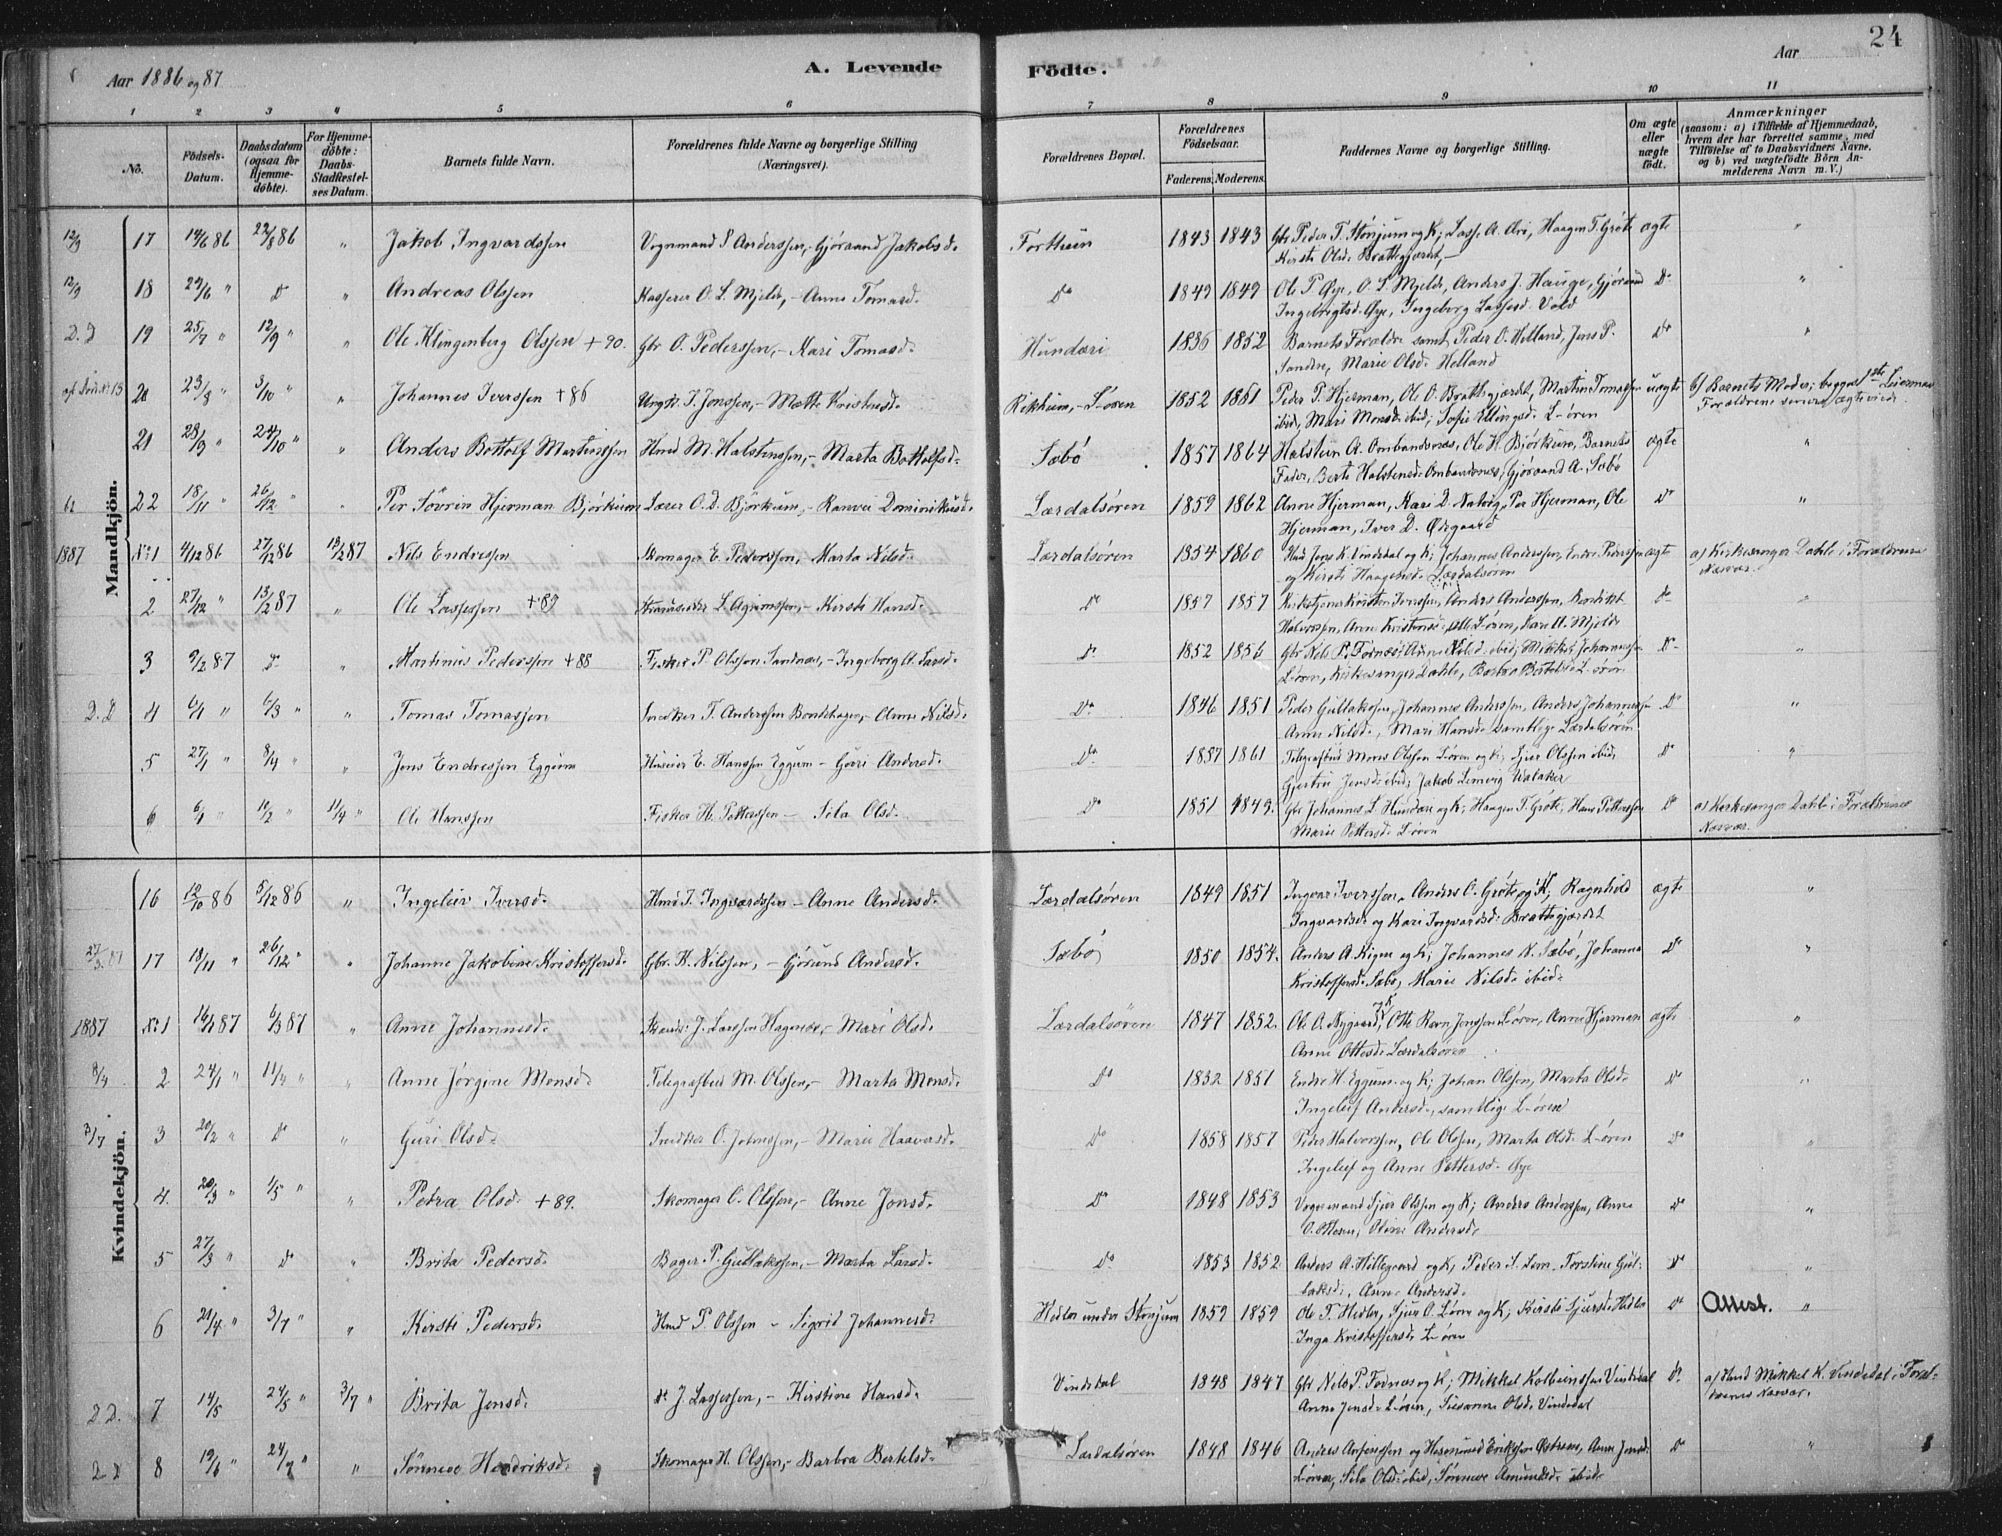 Aar 1886 og 87
A. Levende
Födte.
Aar
24
1 2 3 4 5 6 7 8 9 10 11
No.
Födsels-Datum.
Daabsdatum (ogsaa for Hjemme-döbte).
For Hjemme-döbte: Daabs-Stadfæstel-ses Datum.
Barnets fulde Navn.
Forældrenes fulde Navne og borgerlige Stilling (Næringsvei).
Forældrenes Bopæl.
Forældrenes Födselsaar.
Faderens. Moderens.
Faddernes Navne og borgerlige Stilling.
Om ægte eller uægte födt.
Anmærkninger
(saasom: a) i Tilfælde af Hjemmedaab, hvem der har forrettet samme, med Tilföielse af to Daabsvidners Navne, og b) ved uægtefödte Börn An-melderens Navn m. V.)
Mandkjön.
12/9 17 14/6 86 22/8 86 " Jakob Ingvardssen Vognmand I Anderssen, - Gjöraand Jakobsd. Forthun 1843 1843 Gbr Peder T. Stönjum og K; Lasse A. Öri, Haagen T. Gröte ægte "
Kirsti Olsd. Brattegjerdet, -
12/9 18 24/6 " Do " Andreas Olssen Kasserer O. L. Mjelde, - Anne Tomasd. Do 1849 1849 Ole P. Öye, O. L. Mjelde, Anders J. Hauge, Gjöraand Do "
Ingebrigtsd. Öye, Ingeborg Lassesd. Vold
D. D 19 25/7 " 12/9 " " Ole Klingenberg Olssen + 90. Gbr O. Pederssen, - Kari Tomasd. Hunderi 1836 1852 Barnets Forældre samt Peder O. Helland, Jens P. Do "
Sanden, Marie Olsd. Helland
20 23/8 " 3/10 " " Johannes Iverssen + 86 Ungk. I. Jonssen, - Mætte Kristensd. Rikheim, - L-ören 1852 1861 Peder P. Hjerman, Ole O. Brattegjerdet, Martin Tomassen uægte b) Barnets Moder; begges 1ste Leiermaal
ibid, Mari Monsd. ibid; Sofie Ellingsd. L-ören Forældrene senere ægteviede.
21 28/9 " 24/10 " " Anders Bottolf Martinssen Hmd M. Halstenssen, - Marta Bottolfsd. Sæbö 1857 1864 Halstein A. Ombandsnes, Ole H. Björkum, Barnets ægte "
Fader, Berte Halstensd. Ombandsnes, Gjöraand A. Sæbö
22 18/11 " 26/12 " " Per Sövrin Hjerman Björkum Lærer O. D. Björkum, - Ranvei Dominikusd. Lærdalsören 1859 1862 Anne Hjerman, Kari D. Natvig, Per Hjerman, Ole Do "
Hjerman, Iver D. Öigaard
1887 No 1 4/12 86 27/12 86 13/2 87 Nils Endressen Skomager E. Pederssen, - Marta Nilsd. Lærdalsören 1854 1860 Hmd Jens K. Vindedal og K; Johannes Anderssen, Endre Peerssen ægte a) Kirkesanger Dahle i Forældrenes
og Kirsti Haagensd. Lærdalsören Nærvær.
2 27/12 " 13/2 87 " Ole Lassessen + 89 L. Agrimssen, - Kirsti Hansd. Do 1857 1857 Kirketjener Kristen Iverssen, Anders Anderssen, Bendikt Do "
Halvorssen, Anne Kristensd. alle L-ören, Kari A. Mjelde
3 9/2 87 Do " Martinus Pederssen + 88 Fisker P. Olsson Sandnæs, - Ingeborg A. Larsd. Do 1852 1856 Gbr Nils P. Fodnæs, Anne Nilsd. ibid; Mikkel Johannessen Do "
L-ören, Kirkesanger Dahle, Barbra Bertelsd. L-ören
D. D 4 6/1 " 6/3 " " Tomas Tomassen Snedker T. Anderssen Bondehagen, - Anne Nilsd. Do 1846 1851 Peder Gullakssen, Johannes Anderssen, Anders Johannessen Do "
Anne Nilsd., Mari Hansd. samtlige Lærdalsören
5 27/1 " 8/4 " " Jens Endressen Eggum Huseier E. Hanssen Eggum - Guri Andersd. Do 1857 1861 Telegrafbud Mons Olssen L-ören og K; Sjur Olssen ibid, Do "
Gjertru Jensd. ibid; Jakob Lemvig Walaker
6 6/1 " 10/2 " 11/4 " Ole Hanssen Fisker H. Petterssen - Sila Olsd. Do 1851 1849. Gbr Johannes L Hunderi og K; Haagen T. Gröte, Hans Petterssen Do a) Kirkesanger Dahle i Forældrenes
Marie Pettersd. L-ören Nærvær.
Kvindekjön.
16 10/10 86 5/12 86 " Ingeleiv Iversd. Hmd I. Ingvardssen - Anne Andersd. Lærdalsören 1849 1851 Ingvar Iverssen, Anders O. Gröte og K, Ragnhild ægte "
Ingvardsd. og Kari Ingvardsd. Brattegjerdet
27/3 87 17 18/11 " 26/12 " " Johanne Jakobine Kristoffersd. Gbr. K. Nilssen, - Gjörund Andersd. Sæbö 1850 1854. Anders A. Eigne og K; Johannes N. Sæbö, Johanna Do "
Kristoffersd. Sæbö, Marie Nilsd. ibid.
1887 No 1 16/1 87 6/3 87 " Anne Johannesd. J. Larssen Hagenæs, - Mari Olsd. Lærdalsören 1847 1852. Ole A. Nygaard, Otte Ravn Jenssen L-ören, Anne Hjerman ægte "
Anne Ottesd. Lærdalsören
8/4 2 24/1 " 11/4 " " Anne Jörgine Monsd. Telegrafbud M. Olssen, - Marta Monsd. Do 1852 1851 Endre H. Eggum og K; Johan Olssen, Marta Olsd. Do "
Ingeleif Andersd., samtlige L-ören
3/7 3 20/2 " Do " Guri Olsd. Snedker O. Johnssen, - Marie Haaversd. Do 1858 1857 Peder Halvorssen, Ole Olssen, Marta Olsd. L-ören Do "
Ingeleif og Anne Pettersd. Öye
4. 20/3 " 1/5 " " Petra Olsd. + 89. Skomager O. Olssen, - Anne Jonsd. Do 1848 1853 Vognmand Sjur Olssen og K; Anders Anderssen, Anne Do "
O. Ottesen, Oline Andersd.
5 27/3 " Do " Brita Pedersd. Bager P. Gullakssen, - Marta Larsd. Do 1853 1852 Anders A. Hillegaard og K, Peder S. Lem, Torstine Gul- Do "
laksd., Anne Andersd.
6 21/4 " 3/7 " " Kirsti Pedersd. Hmd P. Olssen - Sigrid Johannesd. Hedler under Stönjum 1859 1859 Ole T. Hedler, Sjur O. L-ören og K; Kirsti Sjursd. Hedler Do Attest. "
Inga Kristoffersd. L-ören
D D. 7 14/5 24/5 " 3/7 " Brita Jensd. do J. Lassessen, - Kirstine Hansd. Vindedal 1848 1847 Gbr Nils P. Fodnæs og K; Mikkel Kolbeinssen Vindedal Do a) Hmd Mikkel K. Vindedal i Foræl-
Anne Jensd. L-ören, Susanne Olsd. Vindedal drenes Nærvær.
D D 8 19/6 " 24/7 " " Sönneve Hendriksd. Skomager H. Olssen, - Barbra Bertelsd. Lærdalsören 1848 1846 Anders Anfinssen og Hermund Erikssen Östrem, Anne Jensd. Do "
L-ören, Sila Olsd. ibid, Sönneve Amundsd. ibid.